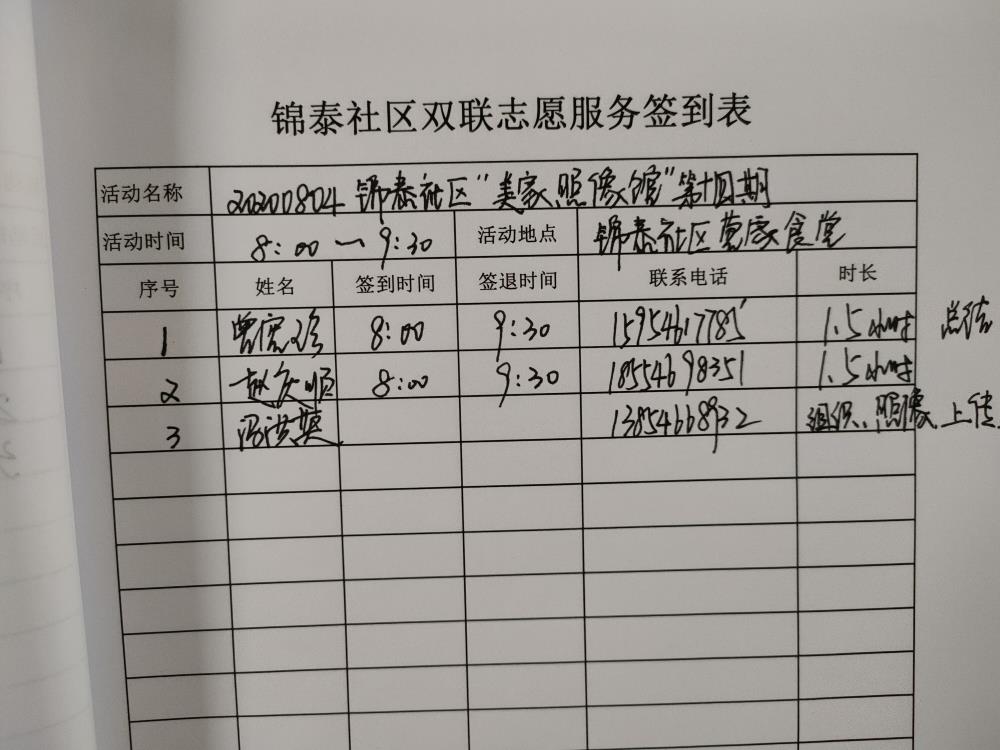 锦泰社区双联志愿服务签到表
活动名称 20200804 锦泰社区“美家照像馆”第十四期
活动时间 8:00 — 9:30 活动地点 锦泰社区 食堂
序号 姓名 签到时间 签退时间 联系电话 时长
1 曾 珍 8:00 9:30 15954617785 1.5小时 总结
2 赵庆顺 8:00 9:30 18554698351 1.5小时
3 冯洪 13854668932 组织、照像、上传